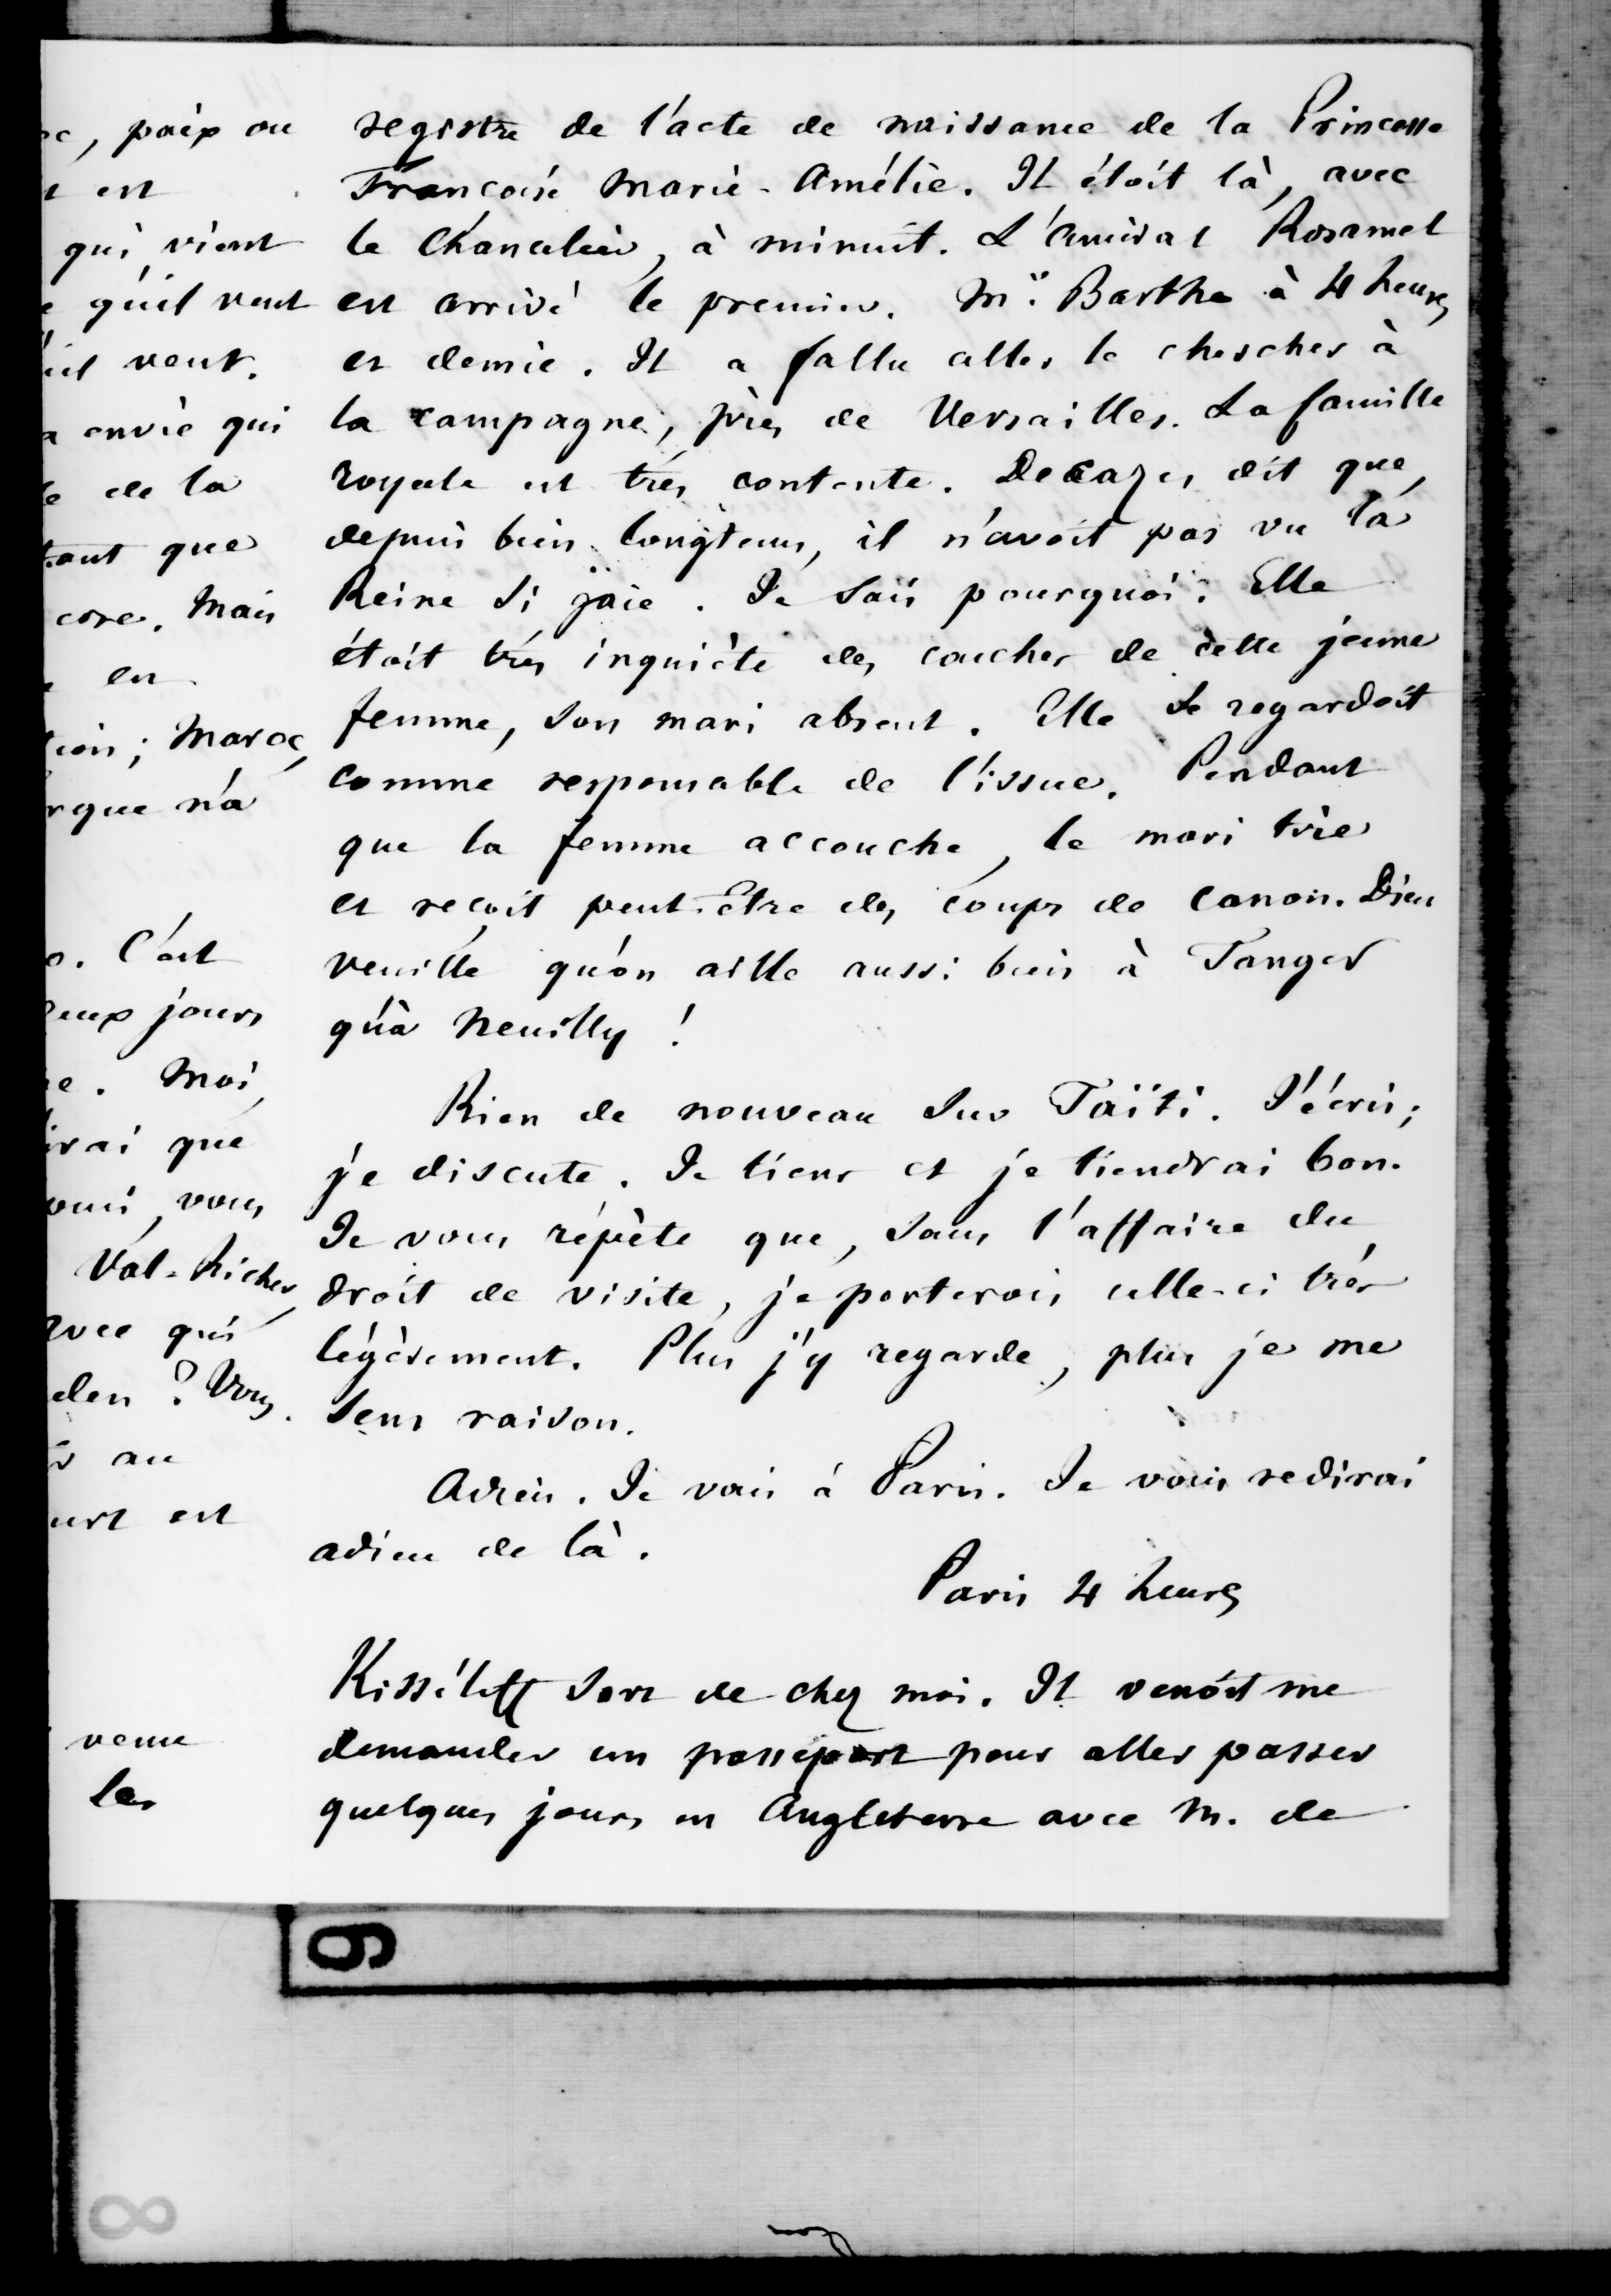 registre de l'acte de naissance de la Princesse
Françoise Marie-Amélie. Il étoit là, avec
le Chancelier, à minuit. L'amiral Rosamel
est arrivé le premier. Mr. Barthe à 4 heures
et demie. Il a fallu aller le chercher à
la campagne, près de Versailles. La famille
royale est très contente. Decazes dit que,
depuis bien longtems, il n'avoit pas vu la
Reine si gaie. Je sais pourquoi. Elle
étoit très inquiète des couches de cette jeune
femme, son mari absent. Elle se regardoit
comme responsable de l'issue. Pendant
que la femme accouche, le mari tire
et reçoit peut-être des coups de canon. Dieu
veuille qu'on aille aussi bien à Tanger
qu'à Neuilly !
Rien de nouveau sur Taïti. J'écris;
je discute. Je tiens et je tiendrai bon.
Je vous répète que, sans l'affaire du
droit de visite, je porterois celle-ci très
légèrement. Plus j'y regarde, plus je me
sens raison.
Adieu. Je vais à Paris. Je vous redirai
adieu de là.
Paris 4 heures
Kisséleff sort de chez moi. Il venoit me
demander un passeport pour aller passer
quelques jours en Angleterre avec M. de
paix ou
est
qui vient
qu'il veut
veut.
envie qui
de la
que
Mais
en
Maroc,
n'a
C'est
jours
Moi,
que
vous
Val-Richer,
qui
? Vous
au
est
venue
les
9
8